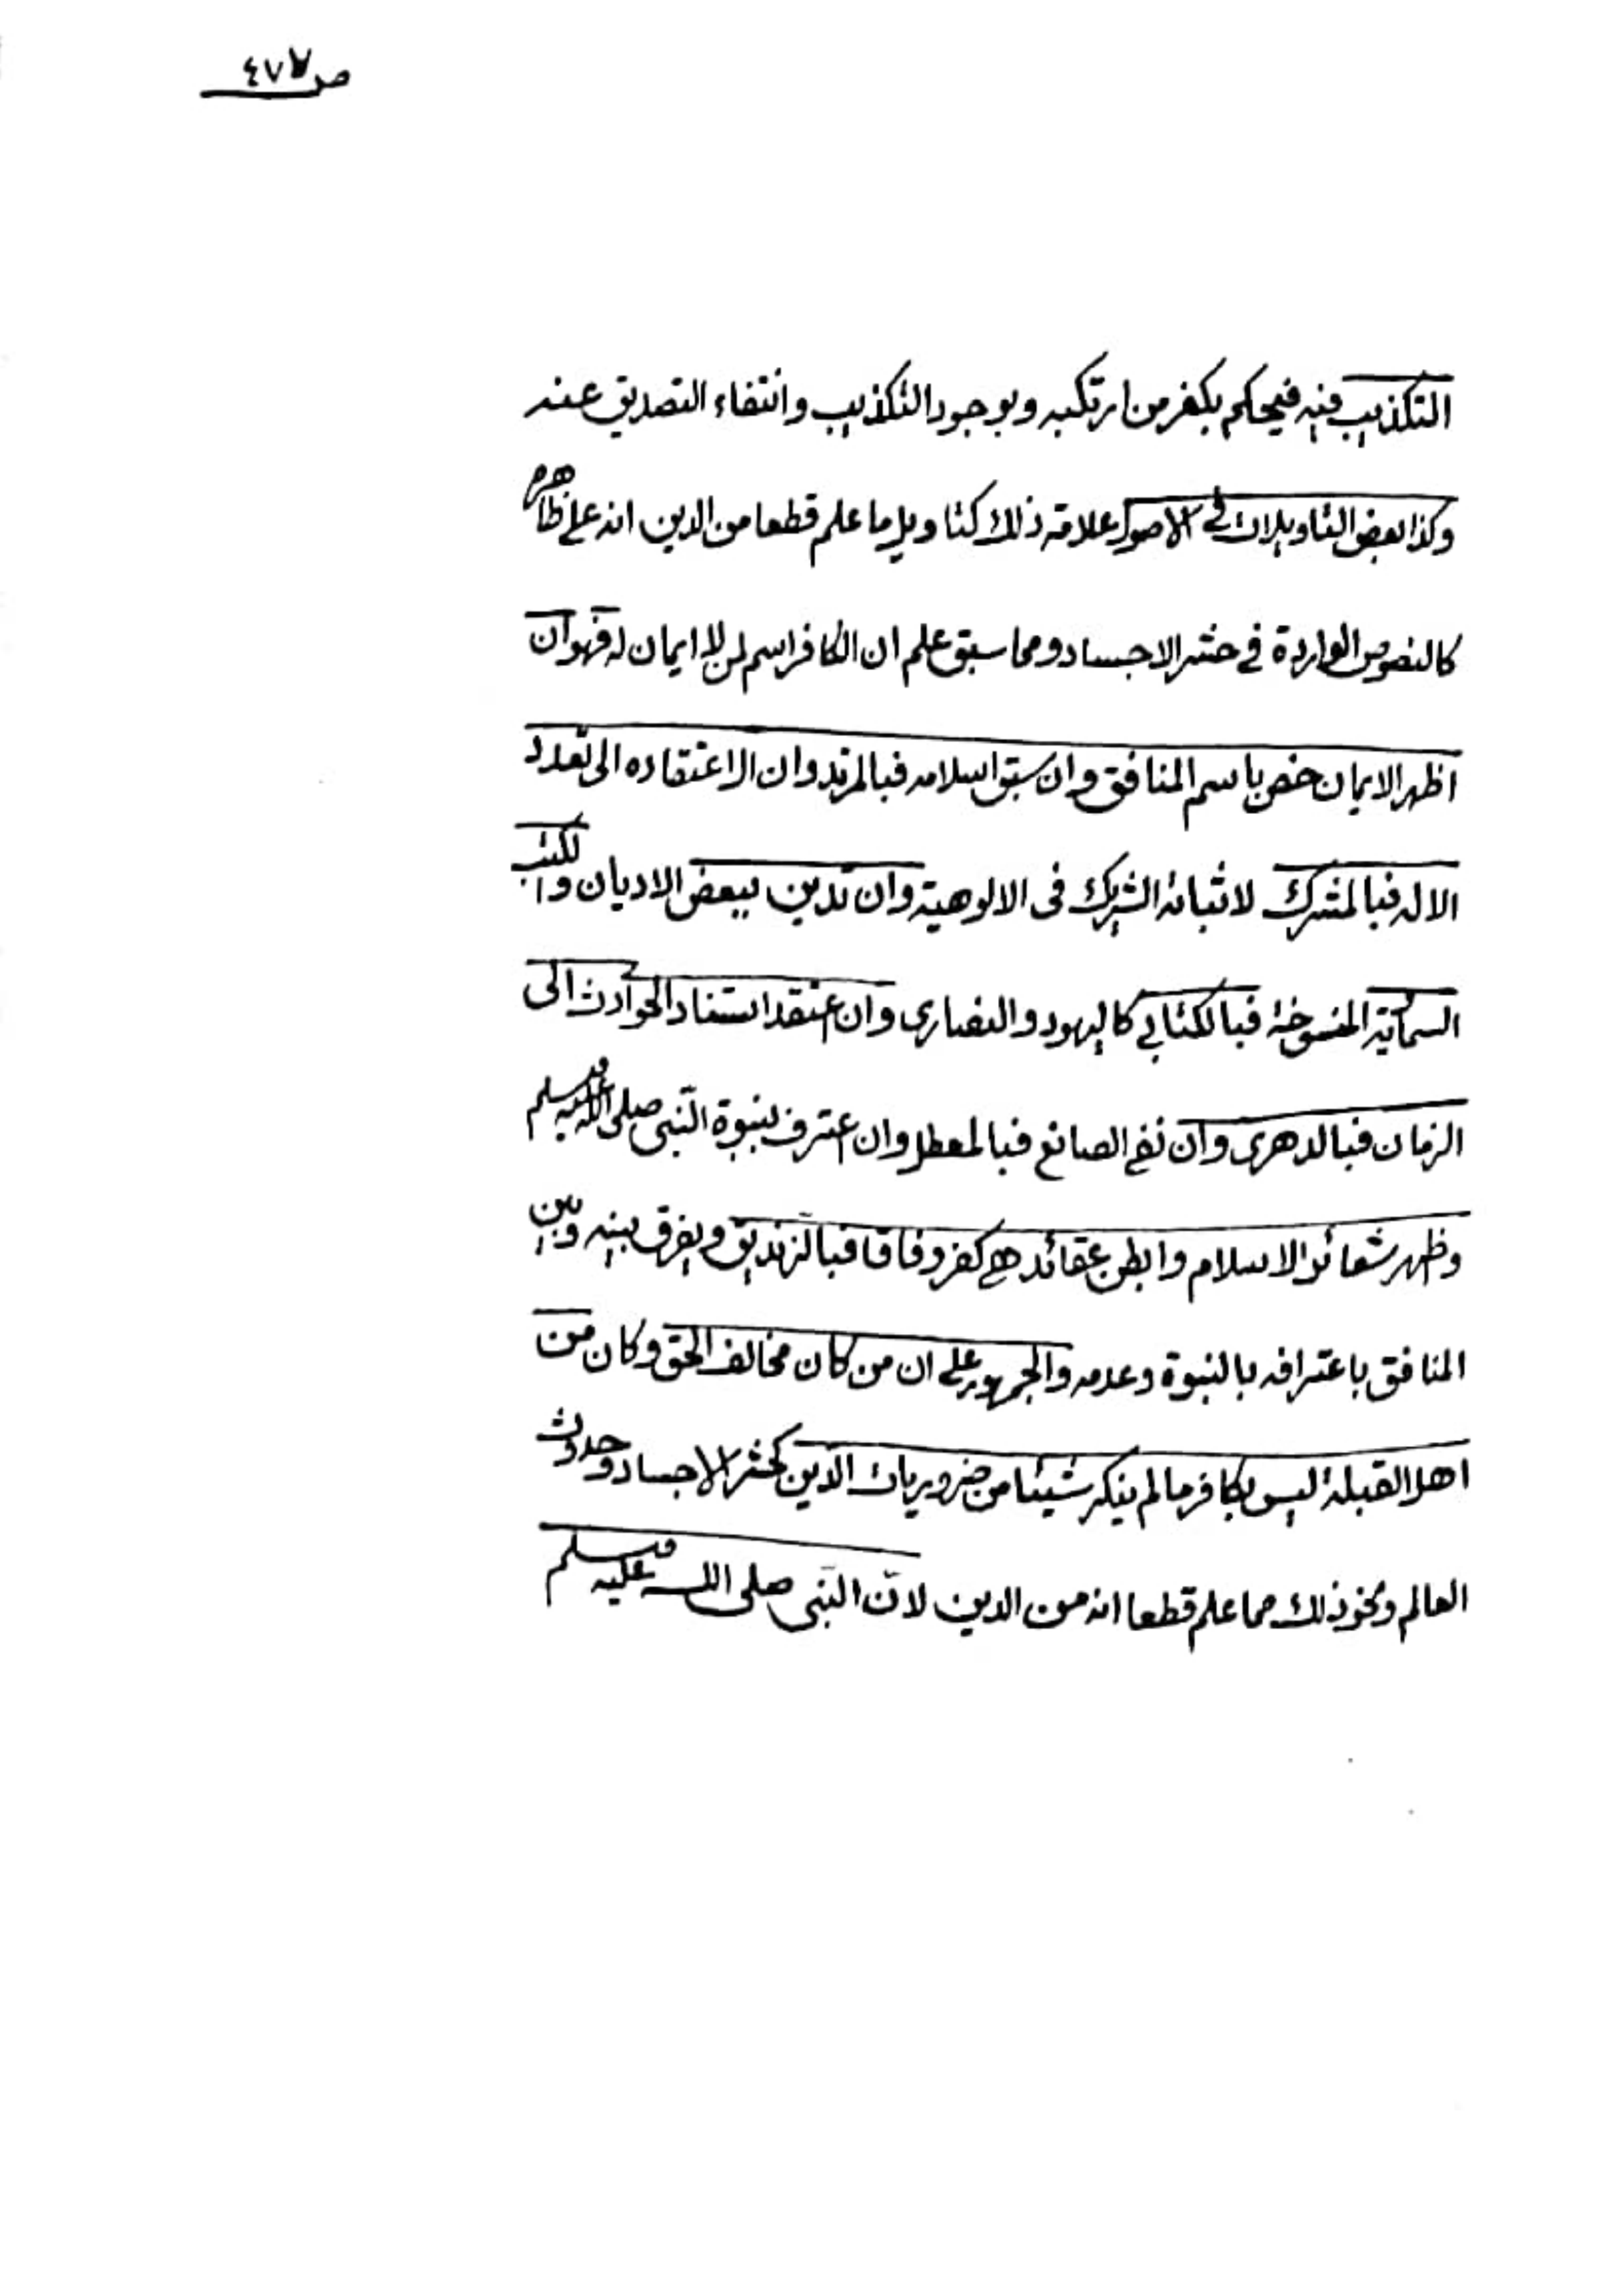 ص ٤٧٧
التكذيب فيه فيحكم بكفر من ارتكبه وبوجود التكذيب وانتفاء التصديق عنه
وكذا بعض التاويلات في الاصول علامة ذلك كتاويل ما علم قطعا من الدين انه على ظاهره
كالنصوص الواردة في حشر الاجساد ومما سبق علم ان الكافر اسم لمن لا ايمان له فهو ان
اظهر الايمان خص باسم المنافق وان سبق اسلامه فبالمرتد وان الاعتقاده الى تعدد
الاله فبالمشرك لاثباته الشريك فى الالوهية وان تدين ببعض الاديان والكتب
السمائية المنسوخة فبالكتابي كاليهود والنصارى وان اعتقد استناد الحوادث الى
الزمان فبالدهرى وان نفى الصانع فبالمعطل وان اعترف بنبوة النّبى صلى الله عليه وسلم
وظهر شعائر الاسلام وابطن عقائد هي كفر وفاقا فبالزنديق ويفرق بينه وبين
المنافق باعترافه بالنبوة وعدمه والجمهور على ان من كان مخالف الحق وكان من
اهل القبلة ليس بكافر ما لم ينكر شيئا من ضروريات الدين كحشر الاجساد وحدوث
العالم ونحو ذلك مما علم قطعا انه من الدين لانّ النّبى صلى الله عليه وسلم